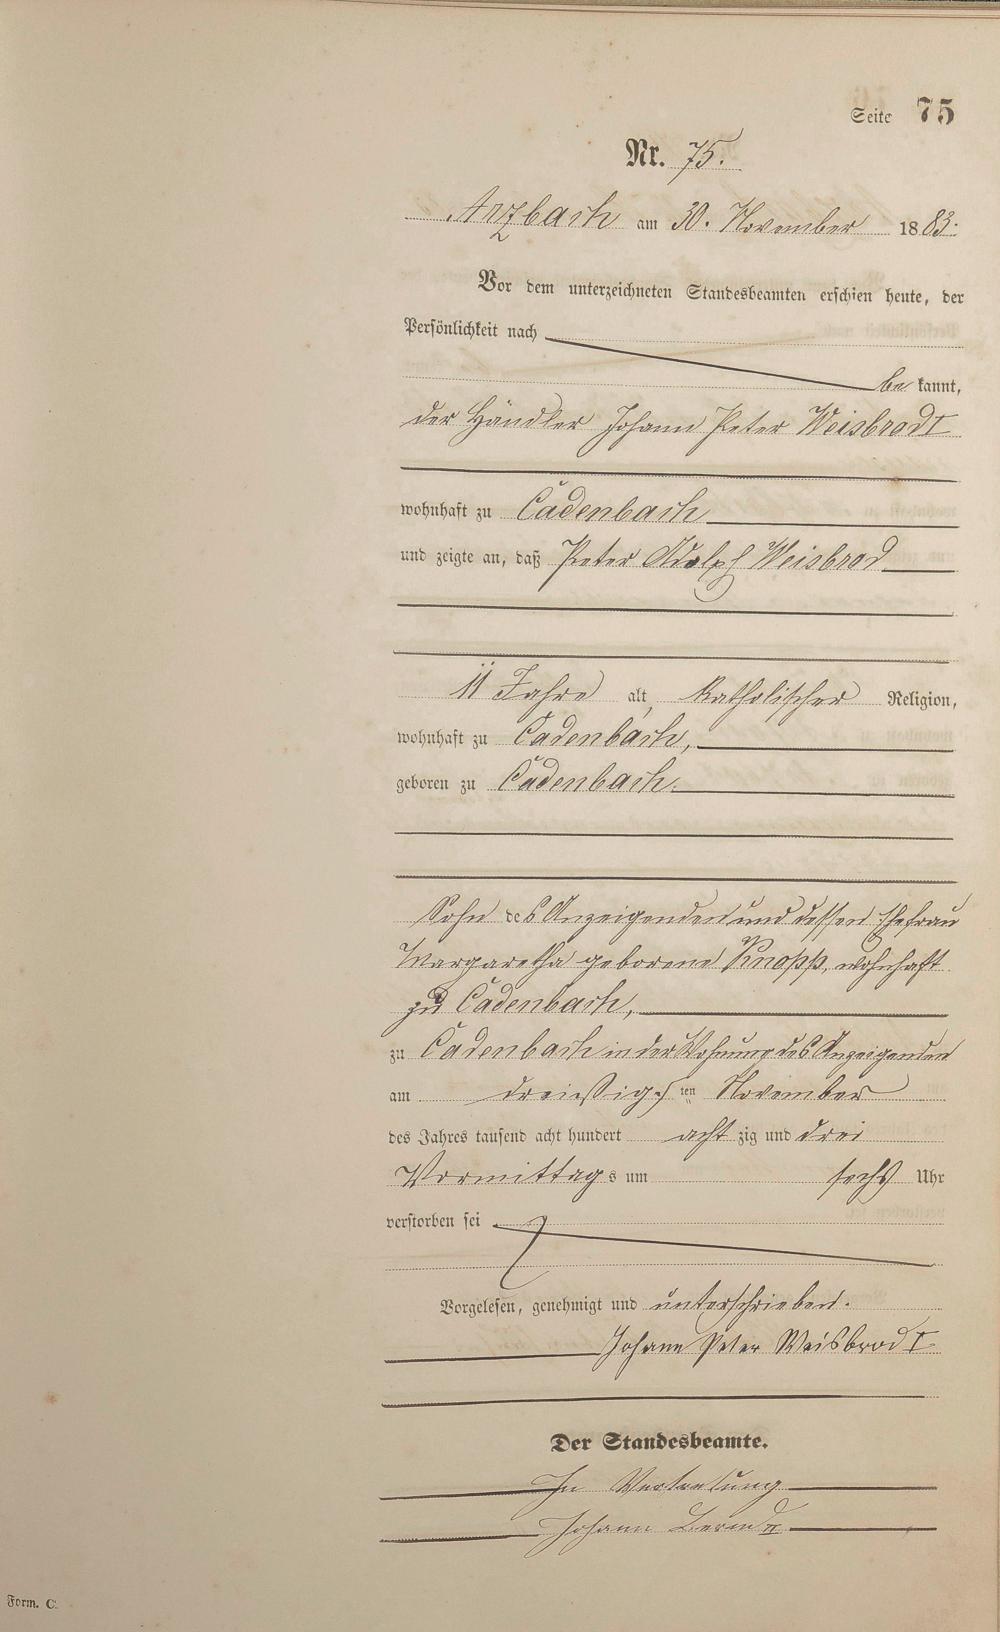 Seite 75
Nr. 75.
Arzbach am 30. November 1883.
Vor dem unterzeichneten Standesbeamten erschien heute, der
Persönlichkeit nach
bekannt,
der Händler Johann Peter Weisbrod I
wohnhaft zu Cadenbach
und zeigte an, daß Peter Adolph Weisbrod
11 Jahre alt, katholischer Religion,
wohnhaft zu Cadenbach,
geboren zu Cadenbach.
Sohn des Anzeigenden und dessen Ehefrau
Margaretha geborene Knopp, wohnhaft
zu Cadenbach,
zu Cadenbach in der Wohnung des Anzeigenden
am dreißigsten November
des Jahres tausend acht hundert achtzig und drei
Vormittags um sechs Uhr
verstorben sei
Vorgelesen, genehmigt und unterschrieben.
Johann Peter Weisbrod I
Der Standesbeamte.
In Vertretung
Johann
Form. C.